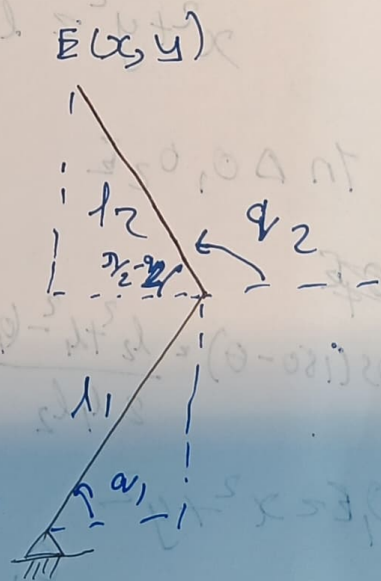 E(x, y)
l2
q2
π/2-q2
l1
q1